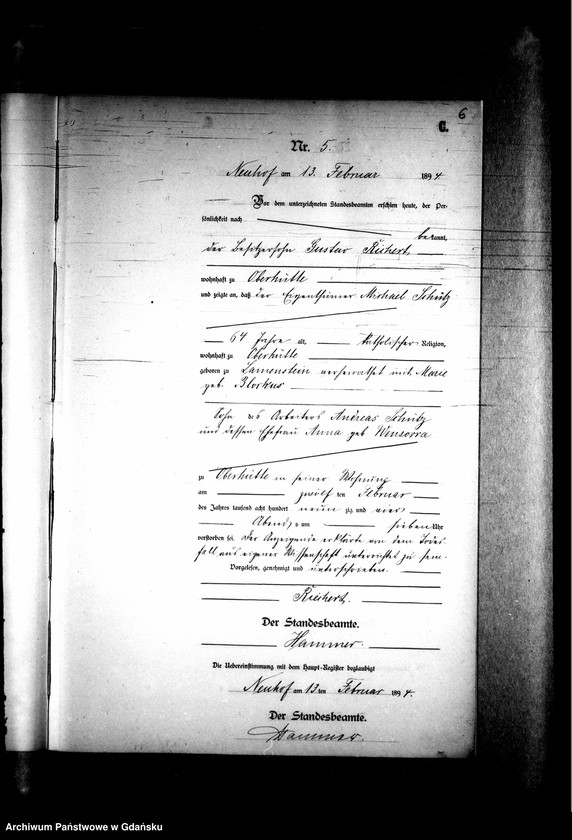 6
C.
Nr. 5.
Neuhof am 13. Februar 1894
Vor dem unterzeichneten Standesbeamten erschien heute, der Per-
sönlichkeit nach
bekannt,
der Besitzersohn Gustav Reichert
wohnhaft zu Oberhütte
und zeigte an, daß der Eigenthümer Michael Schütz
64 Jahre alt, katholischer Religion,
wohnhaft zu Oberhütte
geboren zu Lamenstein verheirathet mit Marie
geb. Blockus
Sohn des Arbeiters Andreas Schütz
und dessen Ehefrau Anna geb Wensorra
zu Oberhütte in seiner Wohnung
am zwölf ten Februar
des Jahres tausend acht hundert neun zig und vier
Abends um sieben Uhr
verstorben sei. Der Anzeigende erklärte von dem Todes-
fall aus eigener Wissenschaft unterrichtet zu sein.
Vorgelesen, genehmigt und unterschrieben.
Reichert.
Der Standesbeamte.
Hammer.
Die Uebereinstimmung mit dem Haupt-Register beglaubigt
Neuhof am 13 ten Februar 1894.
Der Standesbeamte.
Hammer.
Archiwum Państwowe w Gdańsku